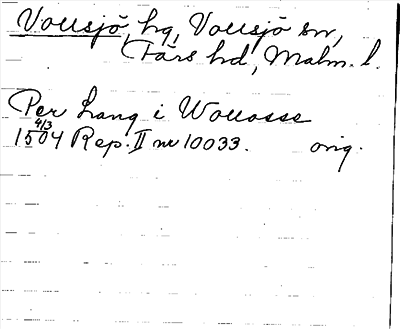 Vollsjö, hg, Vollsjö sn,
Färs hd, Malm. l.
Per Lang i Wollosse
1504 4/3 Rep. II nr 10033. orig.